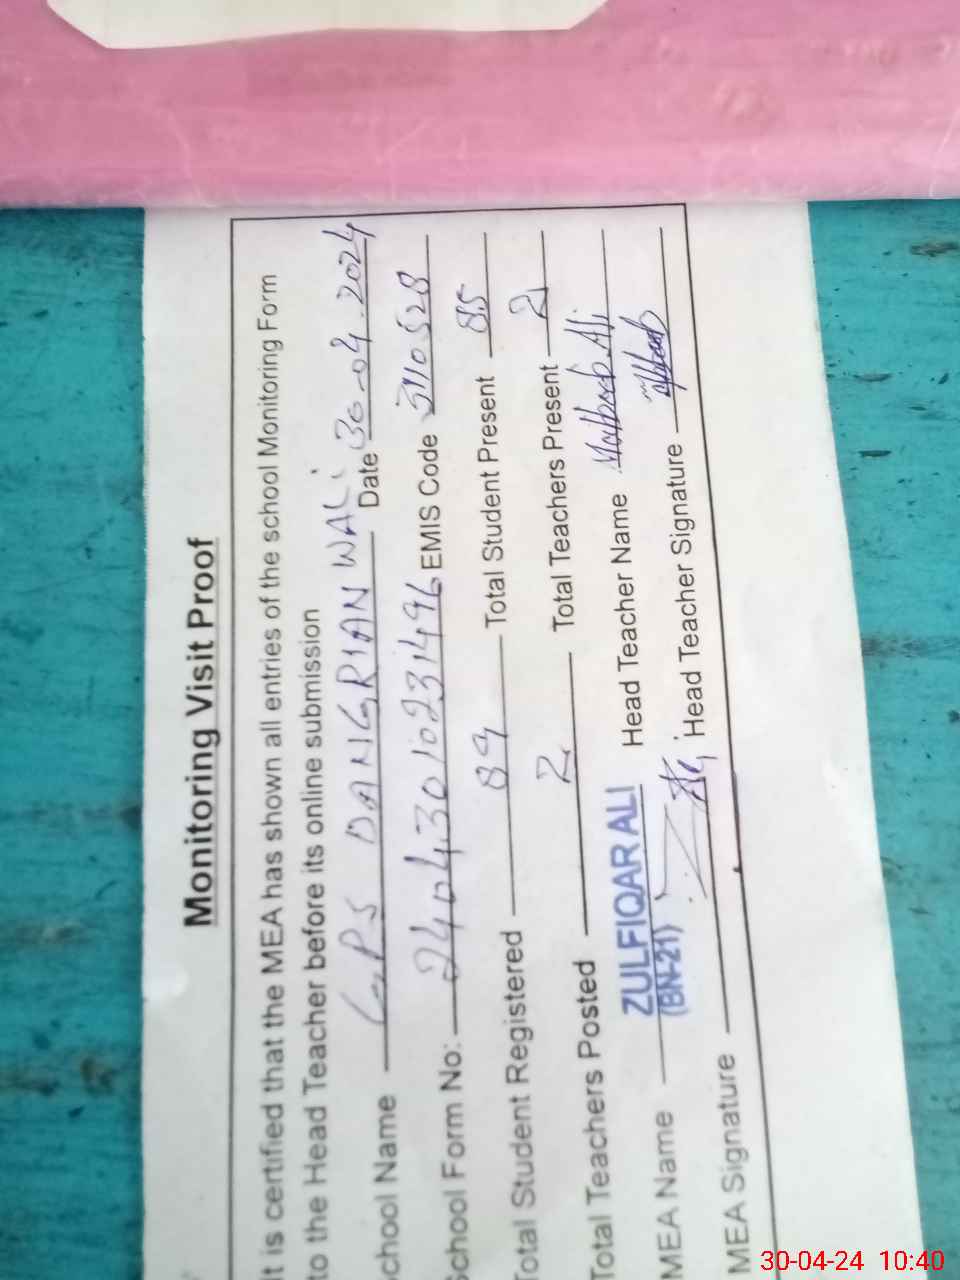 Monitoring Visit Proof
It is certified that the MEA has shown all entries of the school Monitoring Form
to the Head Teacher before its online submission
School Name GPS DANGRIAN WALI Date 30-04-2024
School Form No: 24043010231496 EMIS Code 31110528
Total Student Registered 89 Total Student Present 85
Total Teachers Posted 2 Total Teachers Present 2
MEA Name ZULFIQAR ALI (BN-21) Head Teacher Name Mahboob Ali
MEA Signature Head Teacher Signature
30-04-24 10:40